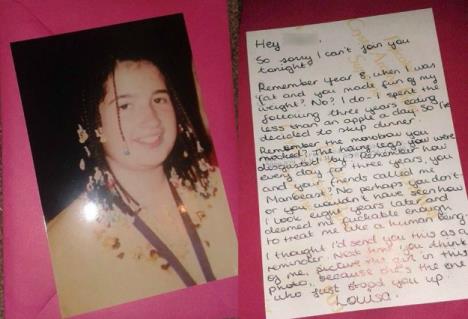 Hey
So sorry I can't join you
tonight.
Remember Year 8, when I was
fat and you made fun of my
weight? No? I do - I spent the
following three years eating
less than an apple a day. So I've
decided to skip dinner.
Remember the monobrow you
mocked? The hairy legs you were
disgusted by? Remember how
every day for three years, you
and your friends called me
Manbeast? No perhaps you don't -
or you wouldn't have seen how
I look eight years later and
deemed me fuckable enough
to treat me like a human being.
I thought I'd send you this as a
reminder. Next time you think
of me, picture the girl in this
photo, because she's the one
who just stood you up.
Louisa.